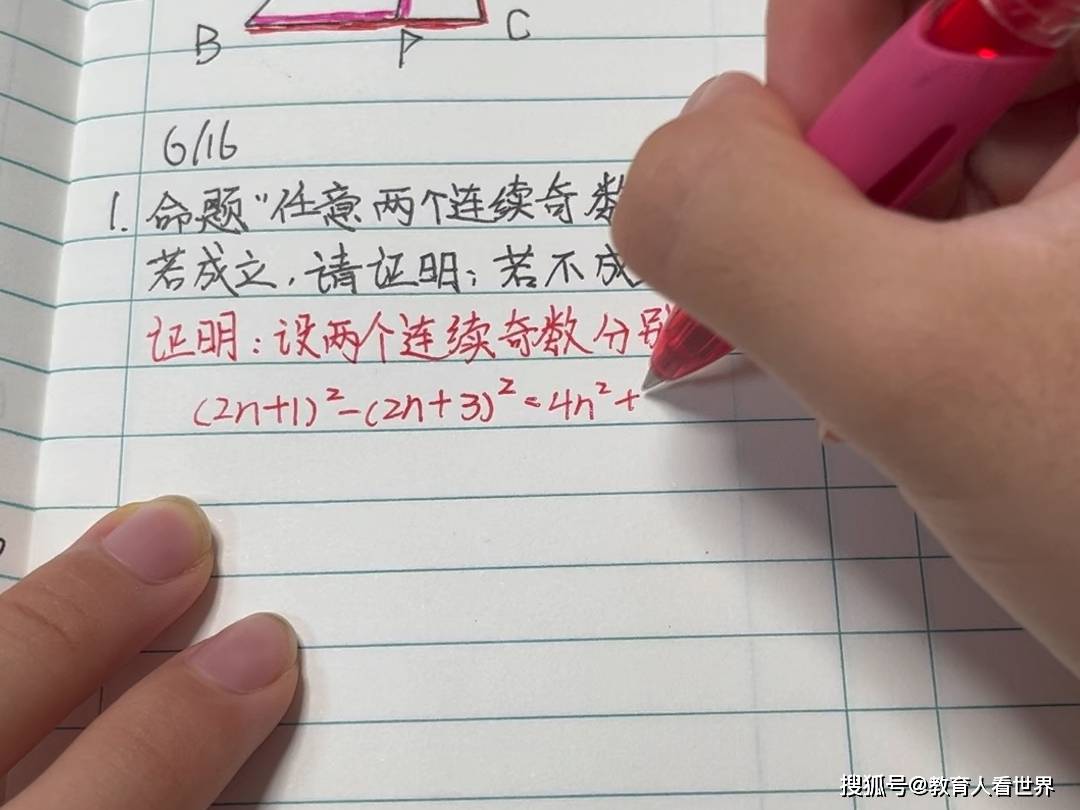 B P C
6/16
1. 命题"任意两个连续奇数
若成立,请证明;若不成
证明:设两个连续奇数分别
(2n+1)²-(2n+3)²=4n²+
搜狐号@教育人看世界